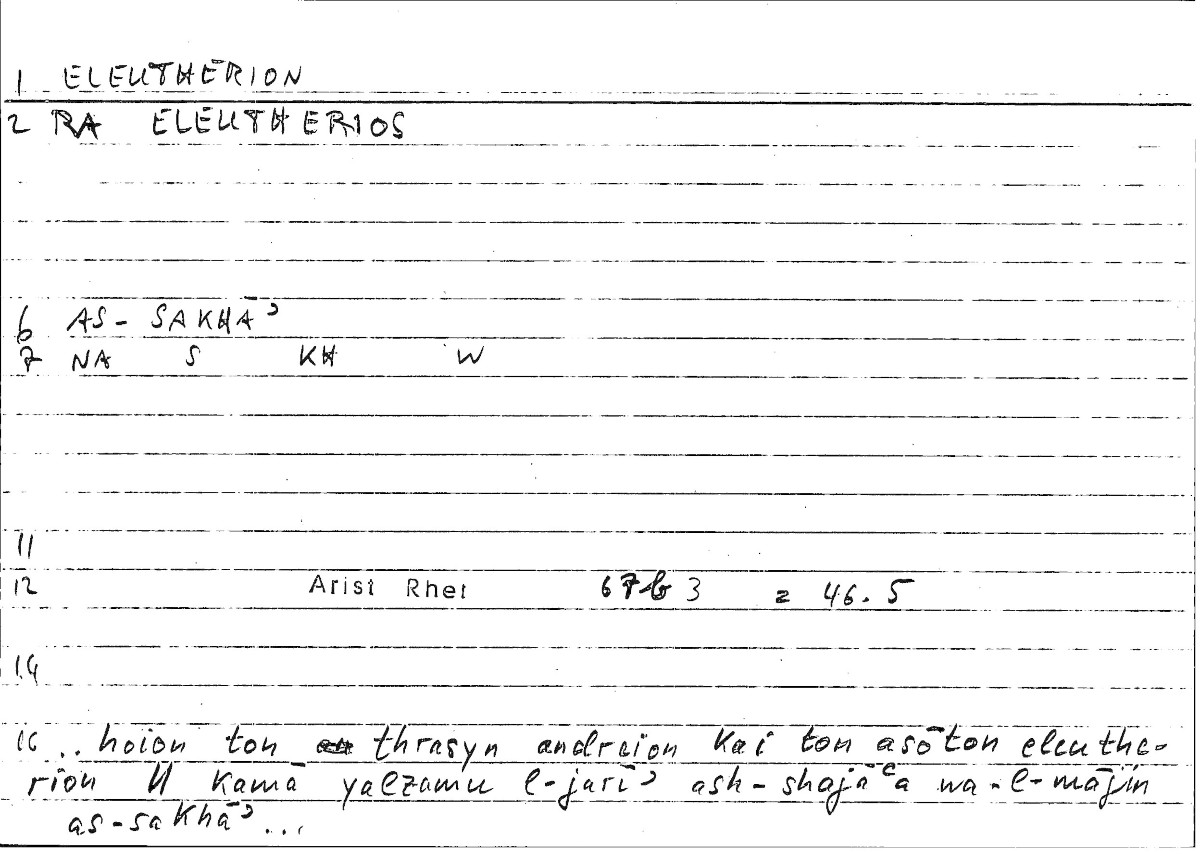 1 ELEUTHERION
2 RA ELEUTHERIOS
6 AS-SAKHĀʾ
7 NA S KH W
11
12 Arist Rhet 67b3 = 46.5
14
16 ..hoion ton thrasyn andreion kai ton asōton eleuthe-
rion // kamā yalzamu l-jarīʾ ash-shajāʿa wa-l-mājin
as-sakhāʾ...